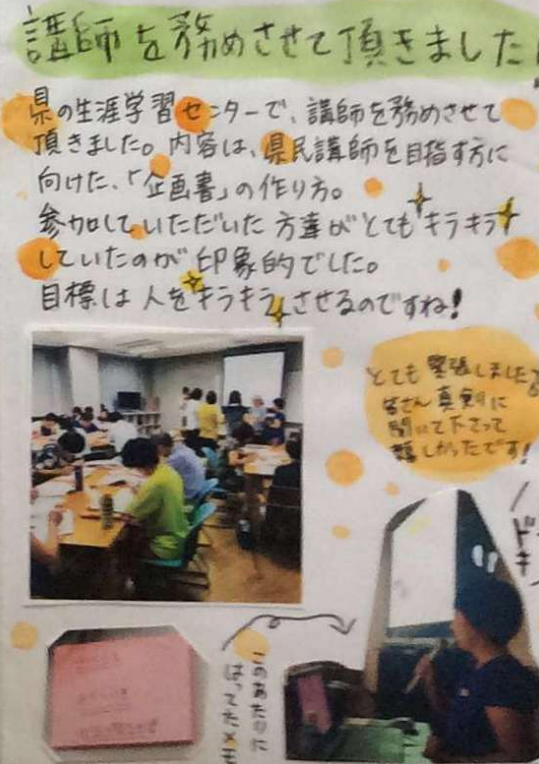 講師を務めさせて頂きました
県の生涯学習センターで、講師を務めさせて
頂きました。内容は、県民講師を目指す方に
向けた、「企画書」の作り方。
参加していただいた方達がとてもキラキラ
していたのが印象的でした。
目標は人をキラキラさせるのですね!
とても緊張しました
皆さん真剣に
聞いて下さって
嬉しかったです!
ドキ
このあたりに
はってたメモ